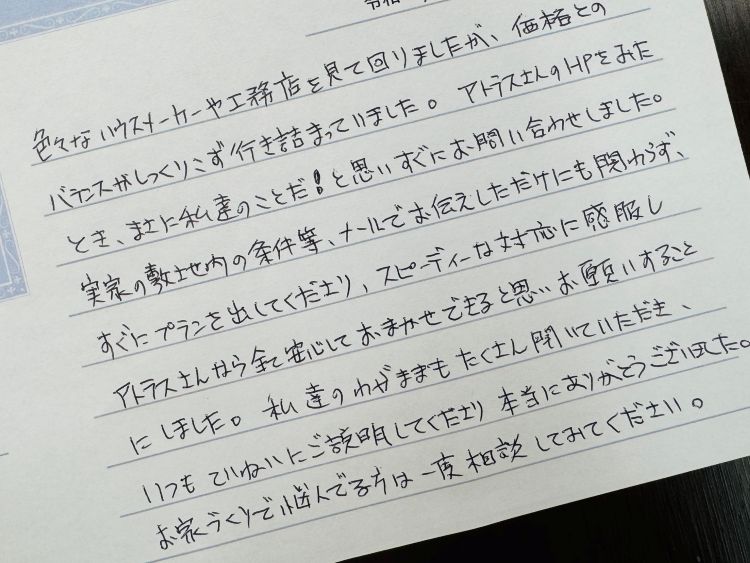 令和
色々なハウスメーカーや工務店を見て回りましたが、価格との
バランスがしっくりこず行き詰まっていました。アトラスさんのHPをみた
とき、まさに私達のことだ!と思いすぐにお問い合わせしました。
実家の敷土地内の条件等、メールでお伝えしただけにも関わらず、
すぐにプランを出してくださり、スピーディーな対応に感服し
アトラスさんなら全て安心しておまかせできると思いお願いすること
にしました。私達のわがままもたくさん聞いていただき、
いつもていねいにご説明してくださり本当にありがとうございました。
お家づくりで悩んでる方は一度相談してみてください。